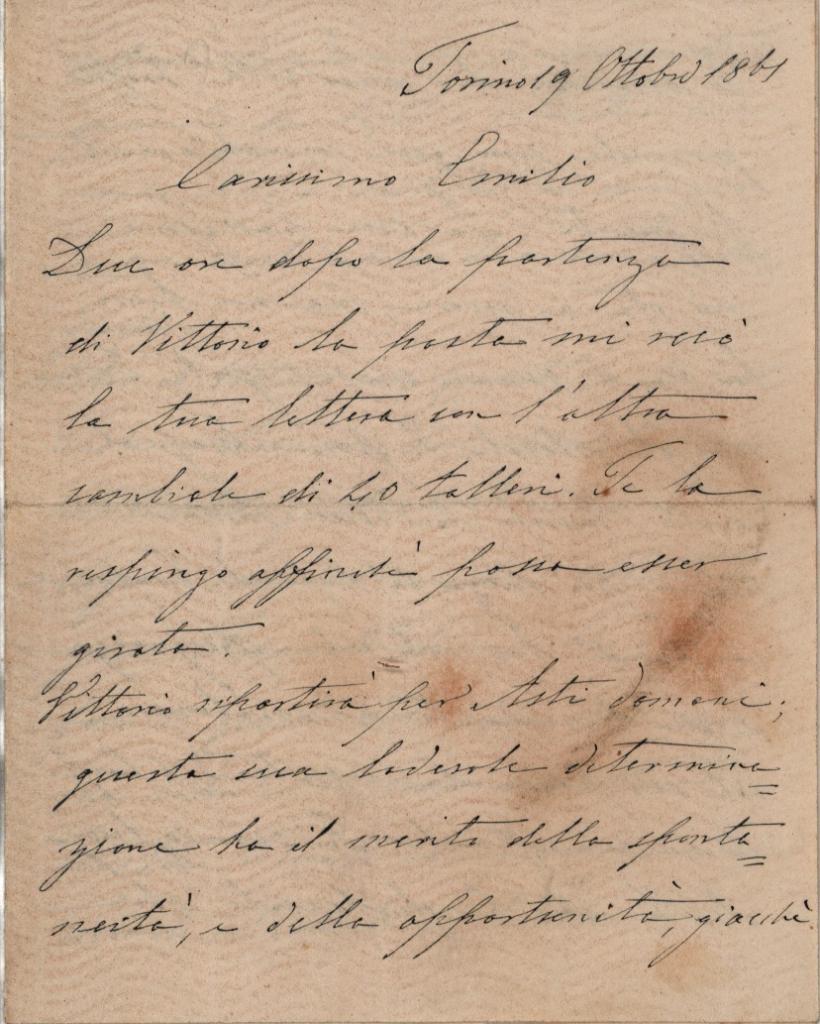 Torino 19 Ottobre 1861
Carissimo Emilio
Due ore dopo la partenza
di Vittorio la posta mi recò
la tua lettera con l'altra
cambiale di 40 talleri. Te la
respingo affinchè possa esser
girata.
Vittorio ripartirà per Asti domani;
questa sua lodevole determina=
zione ha il merito della sponta=
neità, e della opportunità, giacchè